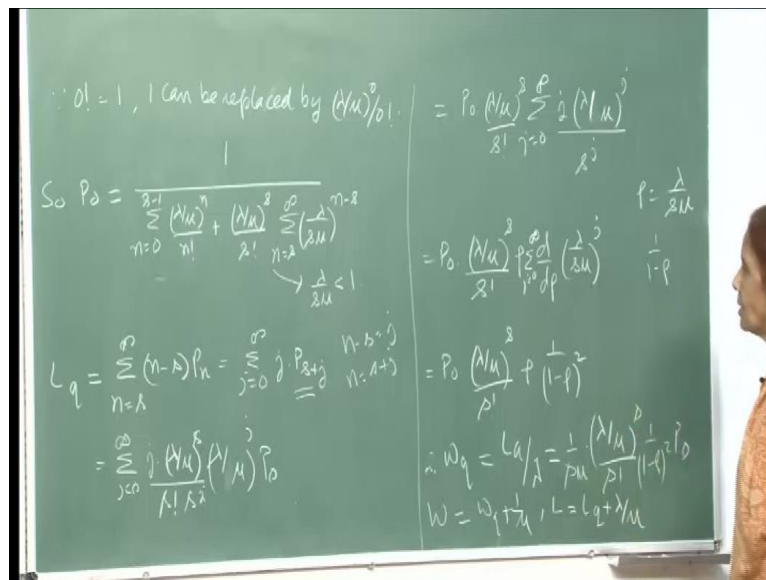 ∵ 0! = 1, 1 can be replaced by (λ/μ)^0/0!.
So P_0 = 1 / ( ∑_{n=0}^{s-1} (λ/μ)^n/n! + (λ/μ)^s/s! ∑_{n=s}^{∞} (λ/sμ)^{n-s} )
→ λ/sμ < 1
L_q = ∑_{n=s}^{∞} (n-s) P_n = ∑_{j=0}^{∞} j · P_{s+j}
n-s=j
n=s+j
= ∑_{j=0}^{∞} j · (λ/μ)^s/(s! s^j) (λ/μ)^j P_0
= P_0 (λ/μ)^s/s! ∑_{j=0}^{∞} j (λ/μ)^j/s^j
ρ = λ/sμ
= P_0 · (λ/μ)^s/s! ρ ∑_{j=0}^{∞} d/dρ (λ/sμ)^j
1/(1-ρ)
= P_0 (λ/μ)^s/s! ρ 1/(1-ρ)^2
∴ W_q = L_q/λ = 1/sμ · (λ/μ)^s/s! 1/(1-ρ)^2 P_0
W = W_q + 1/μ, L = L_q + λ/μ